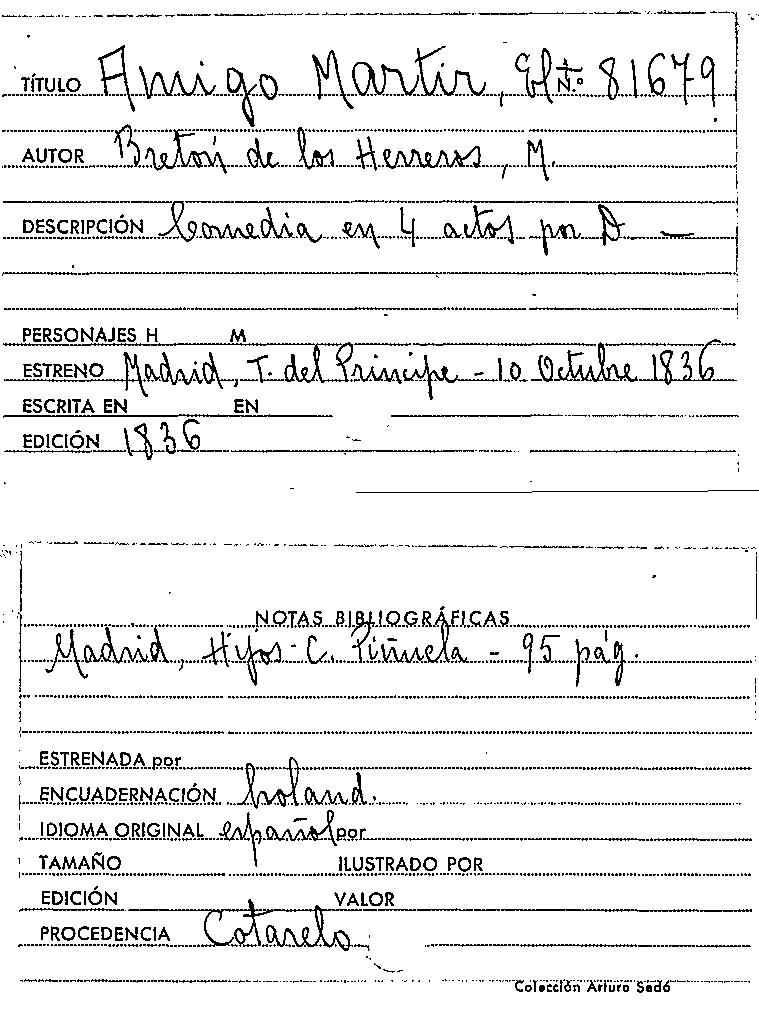 TÍTULO Amigo Martir, El N.º 81679
AUTOR Bretón de los Herreros, M.
DESCRIPCIÓN Comedia en 4 actos por D. —
PERSONAJES H M
ESTRENO Madrid, T. del Principe - 10 Octubre 1836
ESCRITA EN EN
EDICIÓN 1836
NOTAS BIBLIOGRÁFICAS
Madrid, Hijos C. Piñuela - 95 pág.
ESTRENADA por
ENCUADERNACIÓN holand.
IDIOMA ORIGINAL español por
TAMAÑO ILUSTRADO POR
EDICIÓN VALOR
PROCEDENCIA Cotarelo
Colección Arturo Sedó